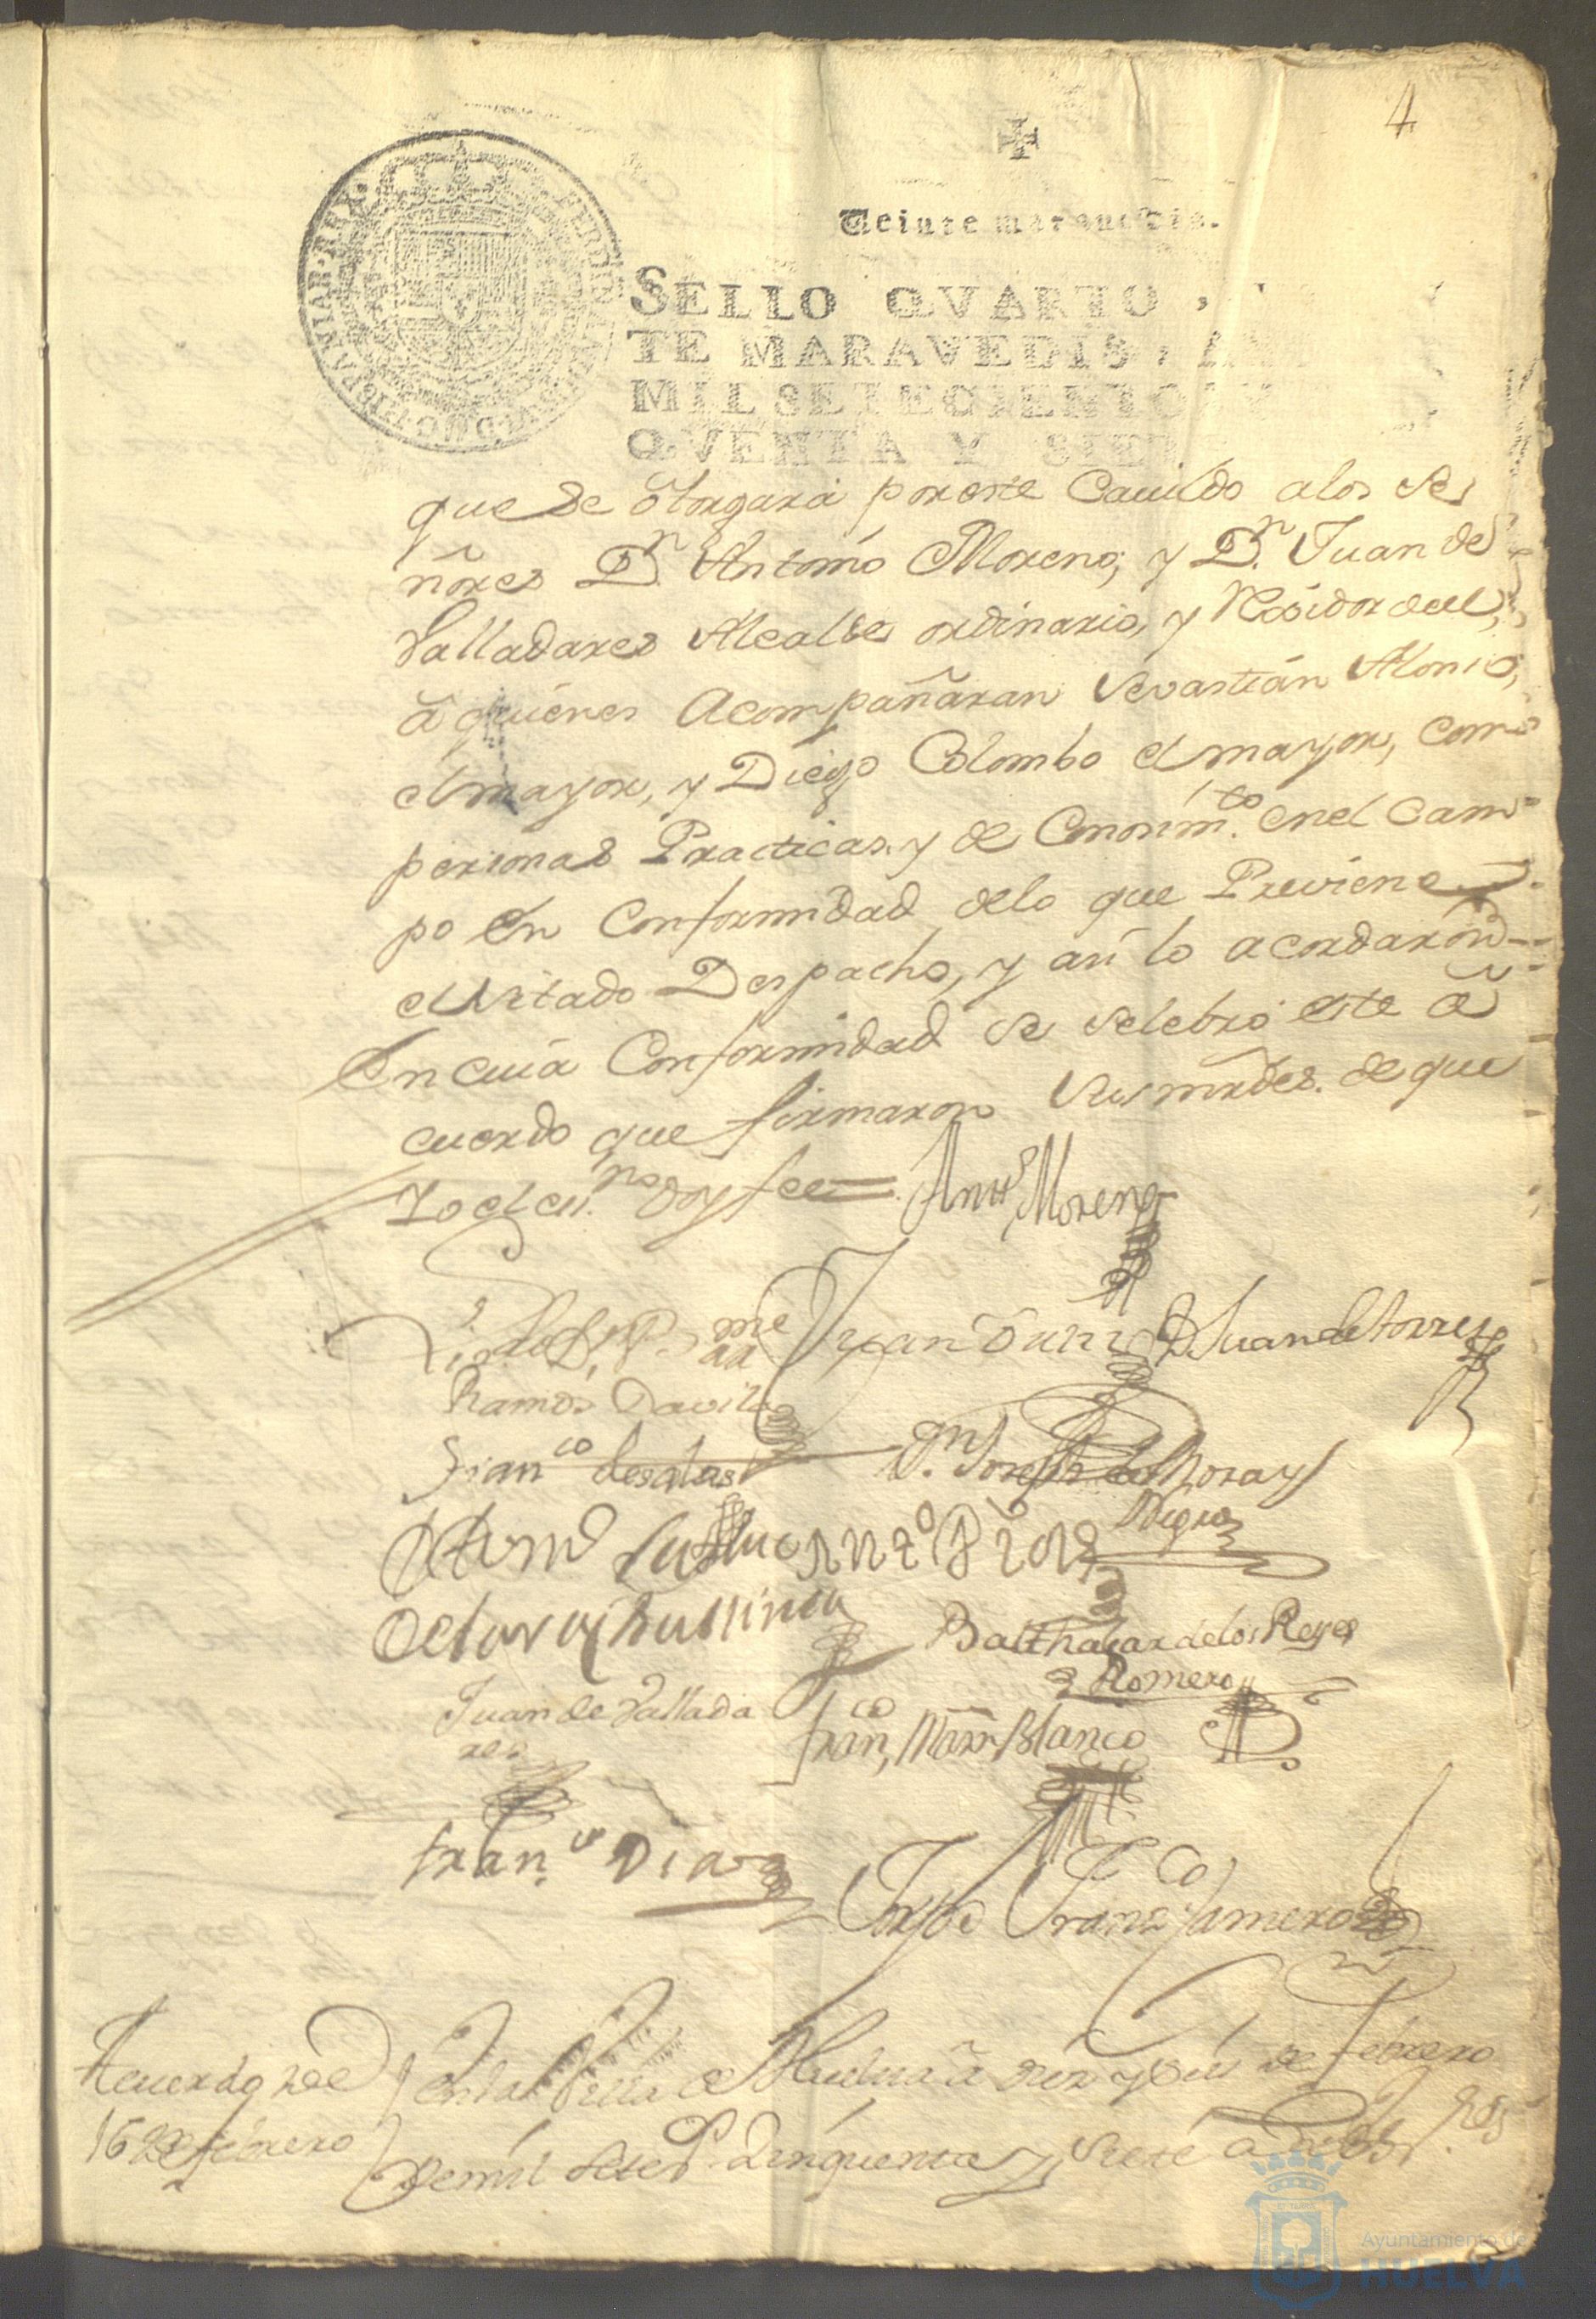 4
Veinte maravedis.
SELLO QVARTO,
TE MARAVEDIS,
MIL SETECIENTO
QVENTA Y SIET
que se otorgará por este Cavildo alos Se
ñores Dn. Antonio Moreno, y Dn. Juan de
Valladares Alcalde ordinario, y Residor del,
á quienes Acompañaran Sevastián Alonso,
el mayor, y Diego Colombo el mayor, como
personas Practicas y de Conosimto. en el Cam
po en Conformidad delo que Previene
el sitado Despacho, y asi lo acordarón
en cuia Conformidad se selebró este a
cuerdo que firmaron Sus mrdes. de que
Yo el esno. doy fee
Anto Moreno
Juan D. Juan de torres
Ramos Davila
Franco de salas Dn. Joseph de Mora y
Negro
Octavo
Balthasar de los Reyes
Romero
Juan de Vallada
res
Franco, Marn Blanco
franco Diaz
Franco Jamero
Acuerdo de
16 de febrero
En la Villa de Huelva á diez y seis de febrero
de mil setes. sinquenta y siete años
Ayuntamiento de
HUELVA